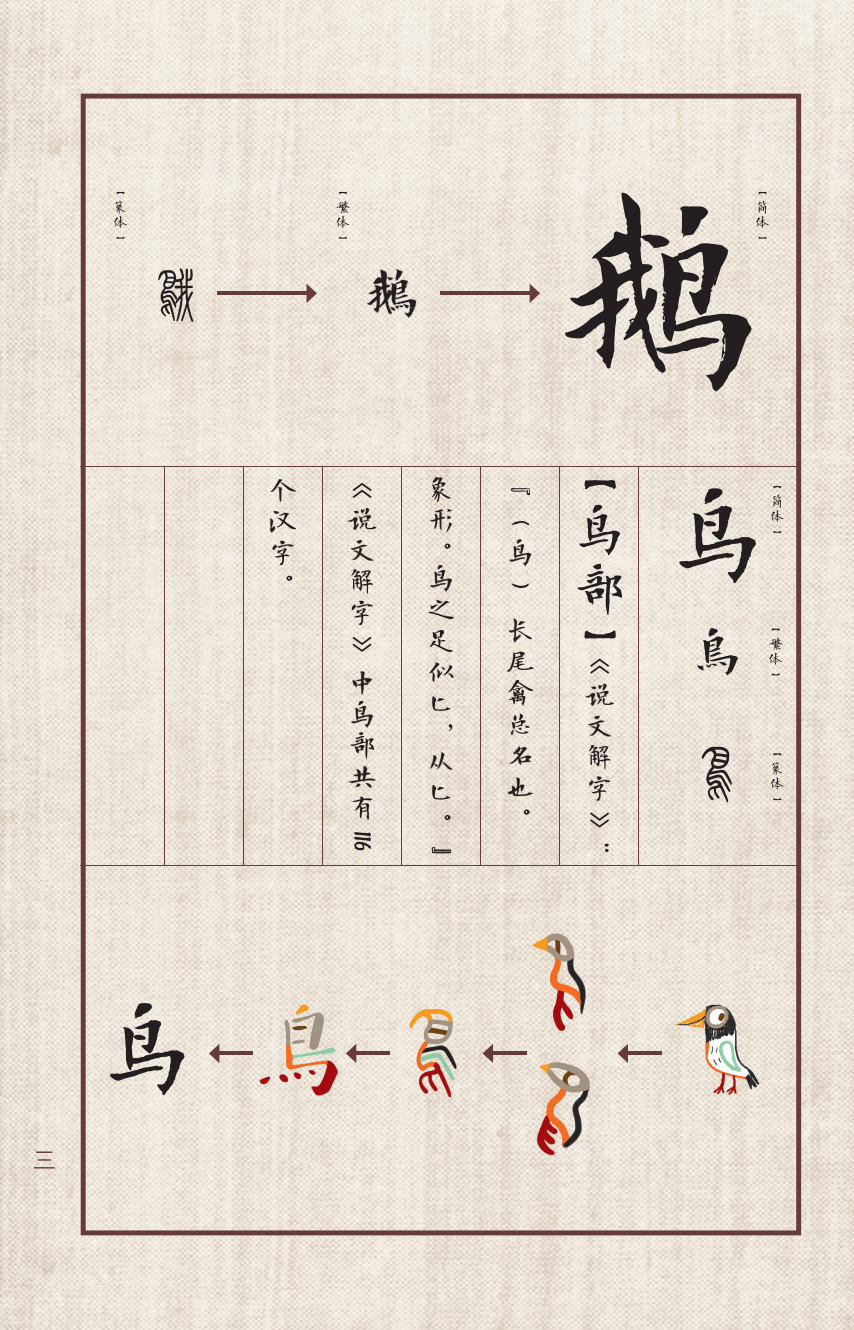 【简体】
鹅
【繁体】
鵝
【篆体】
【简体】
鸟
【繁体】
鳥
【篆体】
【鸟部】《说文解字》：
『（鸟）长尾禽总名也。
象形。鸟之足似匕，从匕。』
《说文解字》中鸟部共有116
个汉字。
鳥
鸟
三